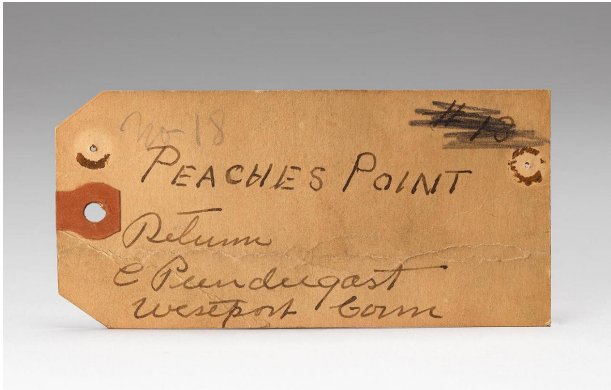 No 18
# 13
PEACHES POINT
Return
C Prendergast
Westport Conn